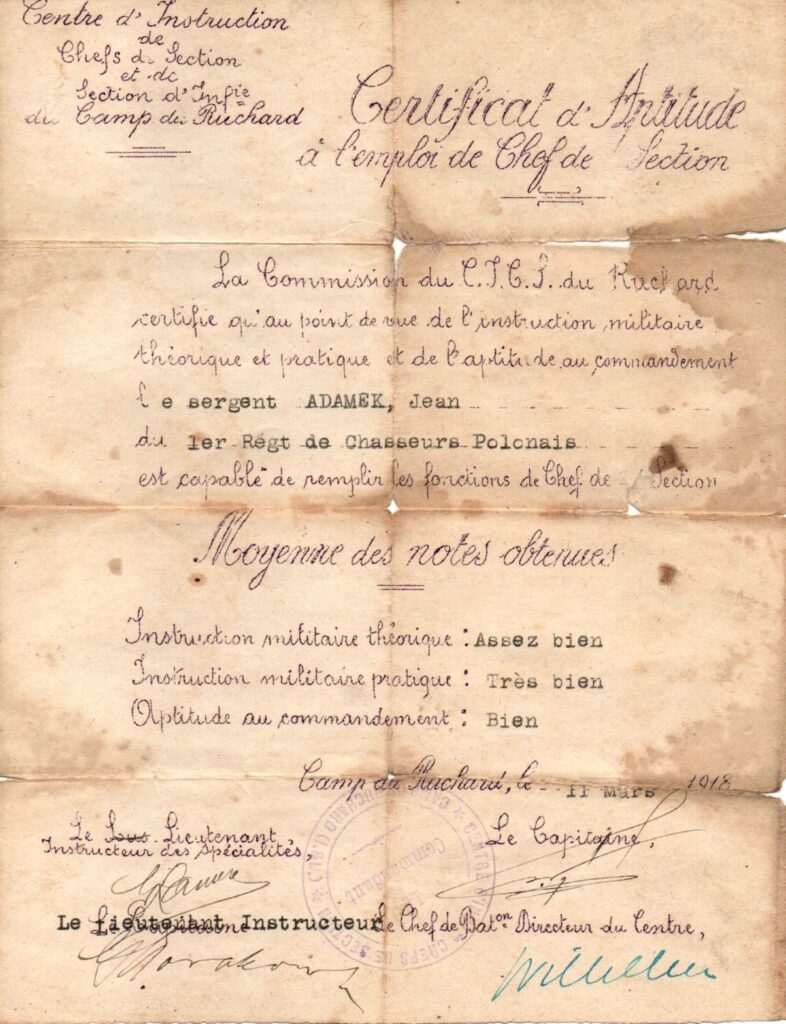 Centre d'Instruction
de
Chefs de Section
et de
Section d'Infie
du Camp du Ruchard
Certificat d'Aptitude
à l'emploi de Chef de Section
La Commission du C.I.C.S. du Ruchard
certifie qu'au point de vue de l'instruction militaire
théorique et pratique et de l'aptitude au commandement
le sergent ADAMEK, Jean
du 1er Regt de Chasseurs Polonais
est capable de remplir les fonctions de Chef de Section
Moyenne des notes obtenues
Instruction militaire théorique : Assez bien
Instruction militaire pratique : Très bien
Aptitude au commandement : Bien
Camp du Ruchard, le 11 Mars 1918
Le Sous Lieutenant
Instructeur des Spécialités,
Le Capitaine,
Le Lieutenant Instructeur
Le Capitaine
Le Chef de Baton Directeur du Centre,
CHEFS DE SECTION
Commandant